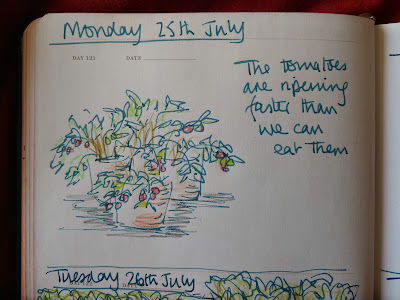 Monday 25th July
DAY 121 DATE
The tomatoes
are ripening
faster than
we can
eat them
Tuesday 26th July